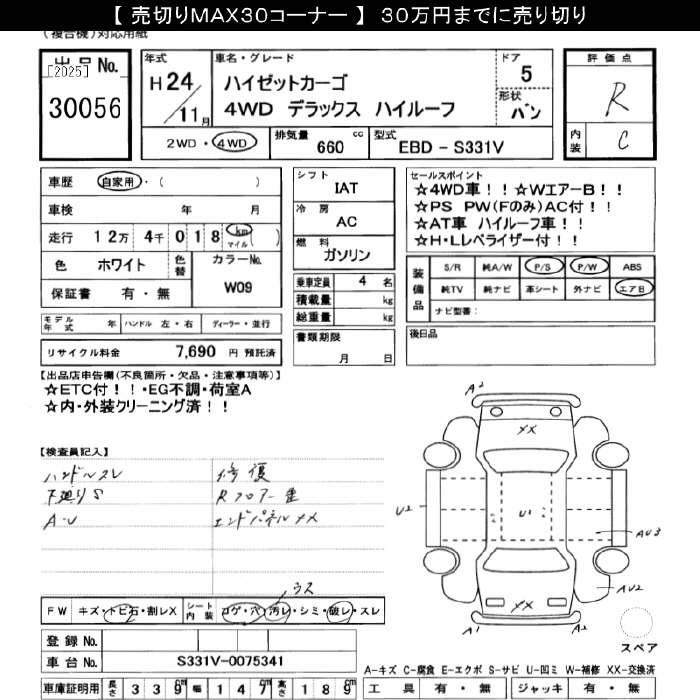 【 売切りMAX30コーナー 】 30万円までに売り切り
(複合機)対応用紙
出品No.
[2025]
30056
年式
H24/11月
車名・グレード
ハイゼットカーゴ
4WD デラックス ハイルーフ
ドア
5
形状
バン
2WD・4WD
排気量 660 cc
型式 EBD - S331V
評価点
R
内装
C
車歴 自家用・( )
車検 年 月
走行 12万 4千 018 km マイル ( )
色 ホワイト 色替 カラーNo. W09
保証書 有・無
モデル年式 年 ハンドル 左・右 ディーラー・並行
リサイクル料金 7,690 円 預託済
シフト
IAT
冷房
AC
燃料
ガソリン
乗車定員 4 名
積載量 kg
総重量 kg
書類期限
月 日
セールスポイント
☆4WD車!!☆WエアーB!!
☆PS PW(Fのみ)AC付!!
☆AT車 ハイルーフ車!!
☆H・Lレベライザー付!!
装備品
S/R 純A/W P/S P/W ABS
純TV 純ナビ 革シート 外ナビ エアB
ナビ型番:
後日品
【出品店申告欄(不良箇所・欠品・注意事項等)】
☆ETC付!!・EG不調・荷室A
☆内・外装クリーニング済!!
【検査員記入】
ハンドルスレ
下廻りS
A・U
修復
Rフロアー歪
エンドパネルXX
ウス
FW キズ・トビ石・割レX
シート内装 コゲ・穴・汚レ・シミ・破レ・スレ
登録No.
車台No. S331V-0075341
車庫証明用 長さ 339cm 幅 147cm 高さ 189cm
A2
XX
U2
U1
AU3
AU2
XX
A1
A2
スペア
A-キズ C-腐食 E-エクボ S-サビ U-凹ミ W-補修 XX-交換済
工具 有・無 ジャッキ 有・無